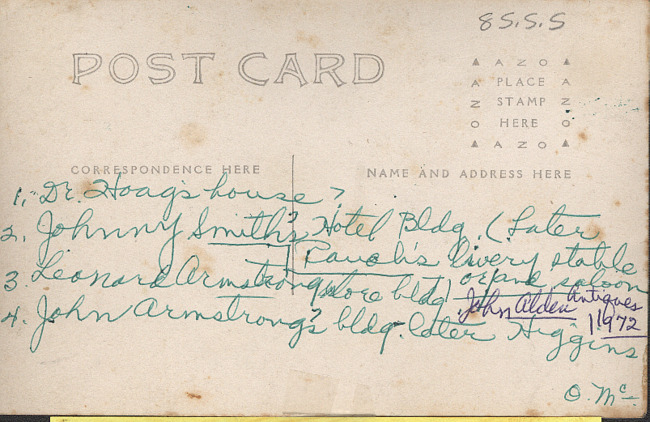 8 S.S.S
POST CARD
▲ A Z O ▲
A PLACE A
Z STAMP Z
O HERE O
▲ A Z O ▲
CORRESPONDENCE HERE
NAME AND ADDRESS HERE
1. Dr. Hoag's house?
2. Johnny Smith's? Hotel Bldg. (Later
livery stable
and saloon
3. Leonard Armstrong store bldg
John Alden Antiques
1972
4. John Armstrong's? bldg. later Higgins
O. Mc